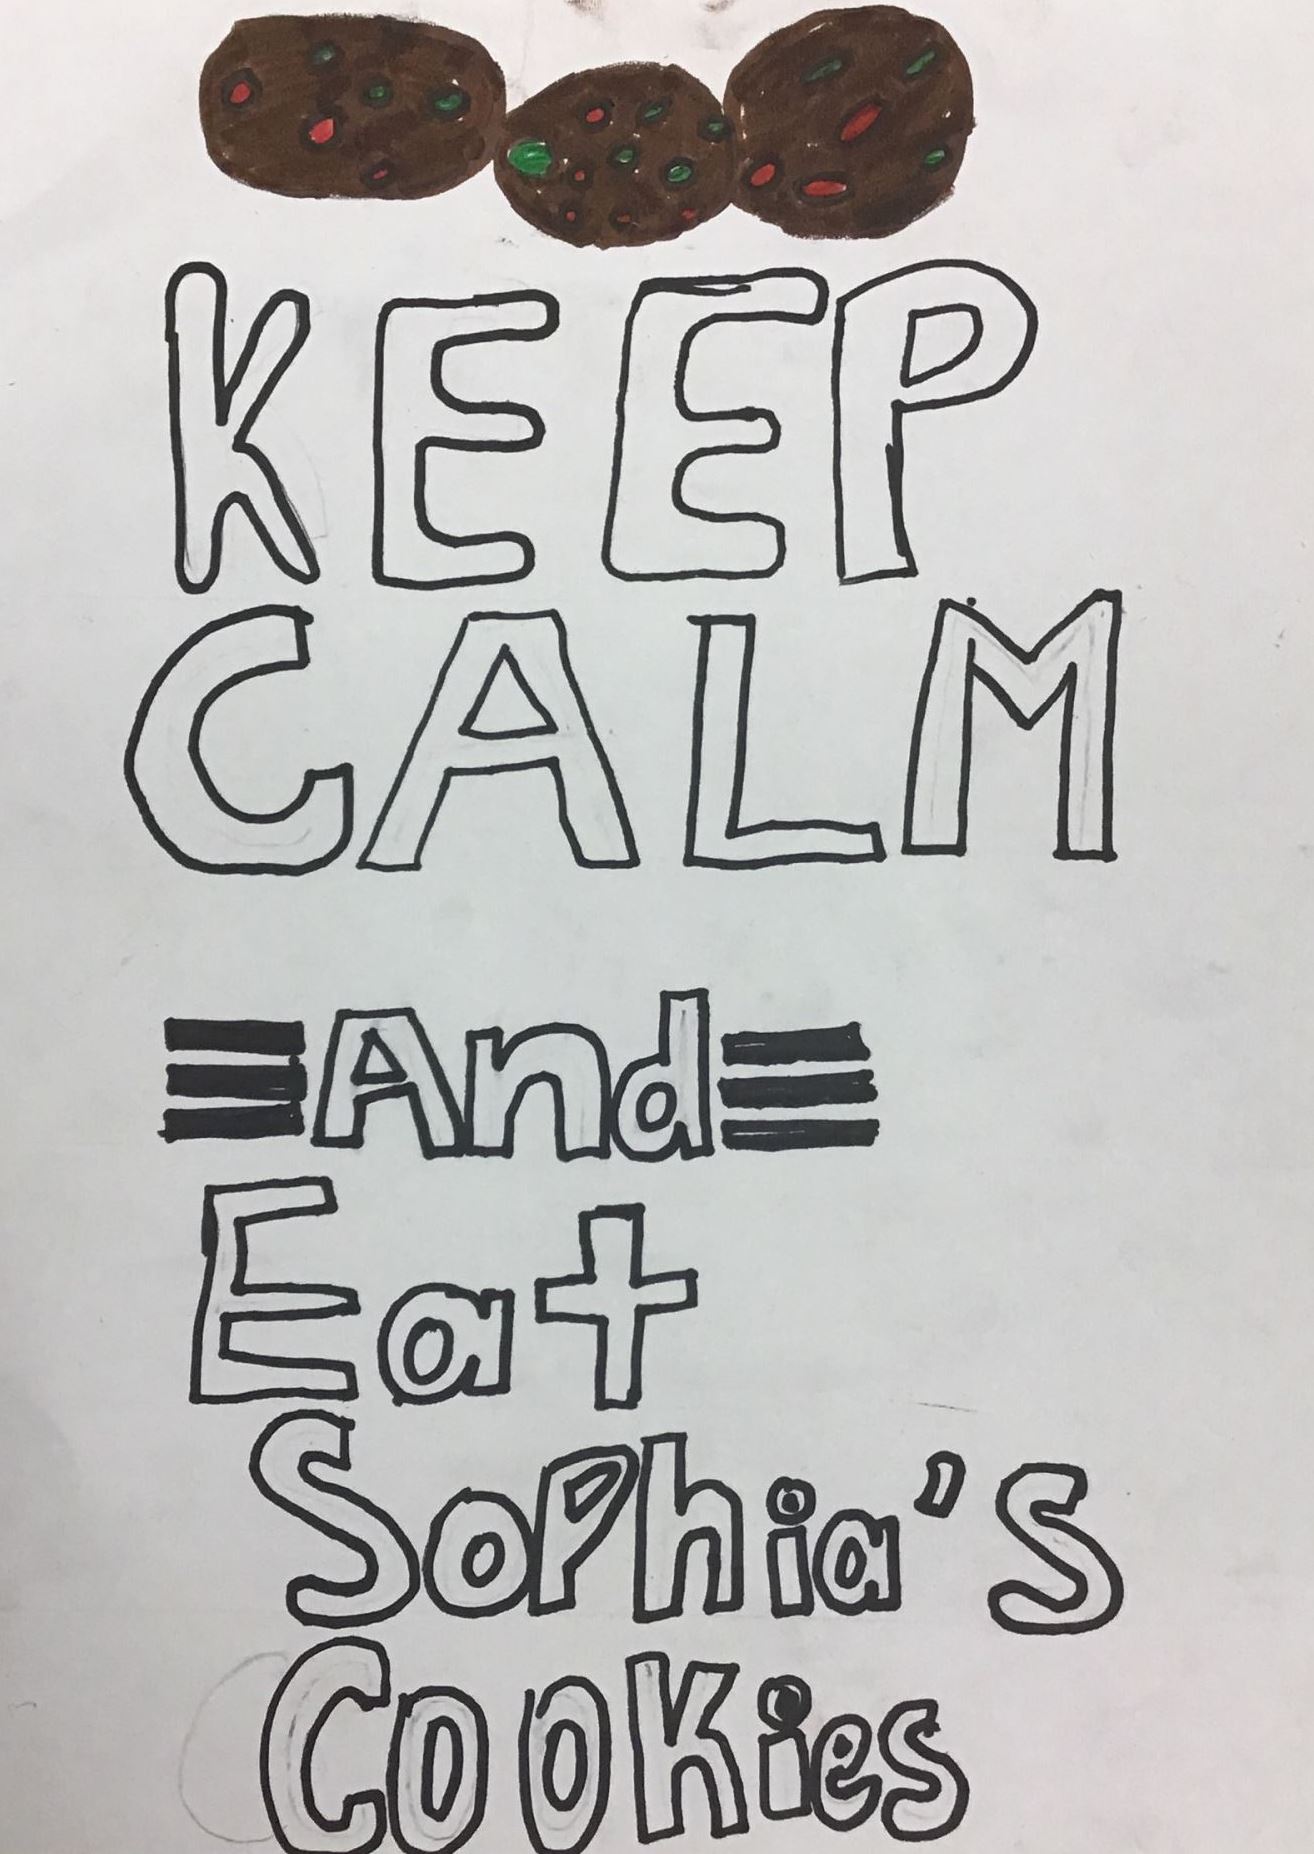 KEEP
CALM
And
Eat
Sophia's
Cookies